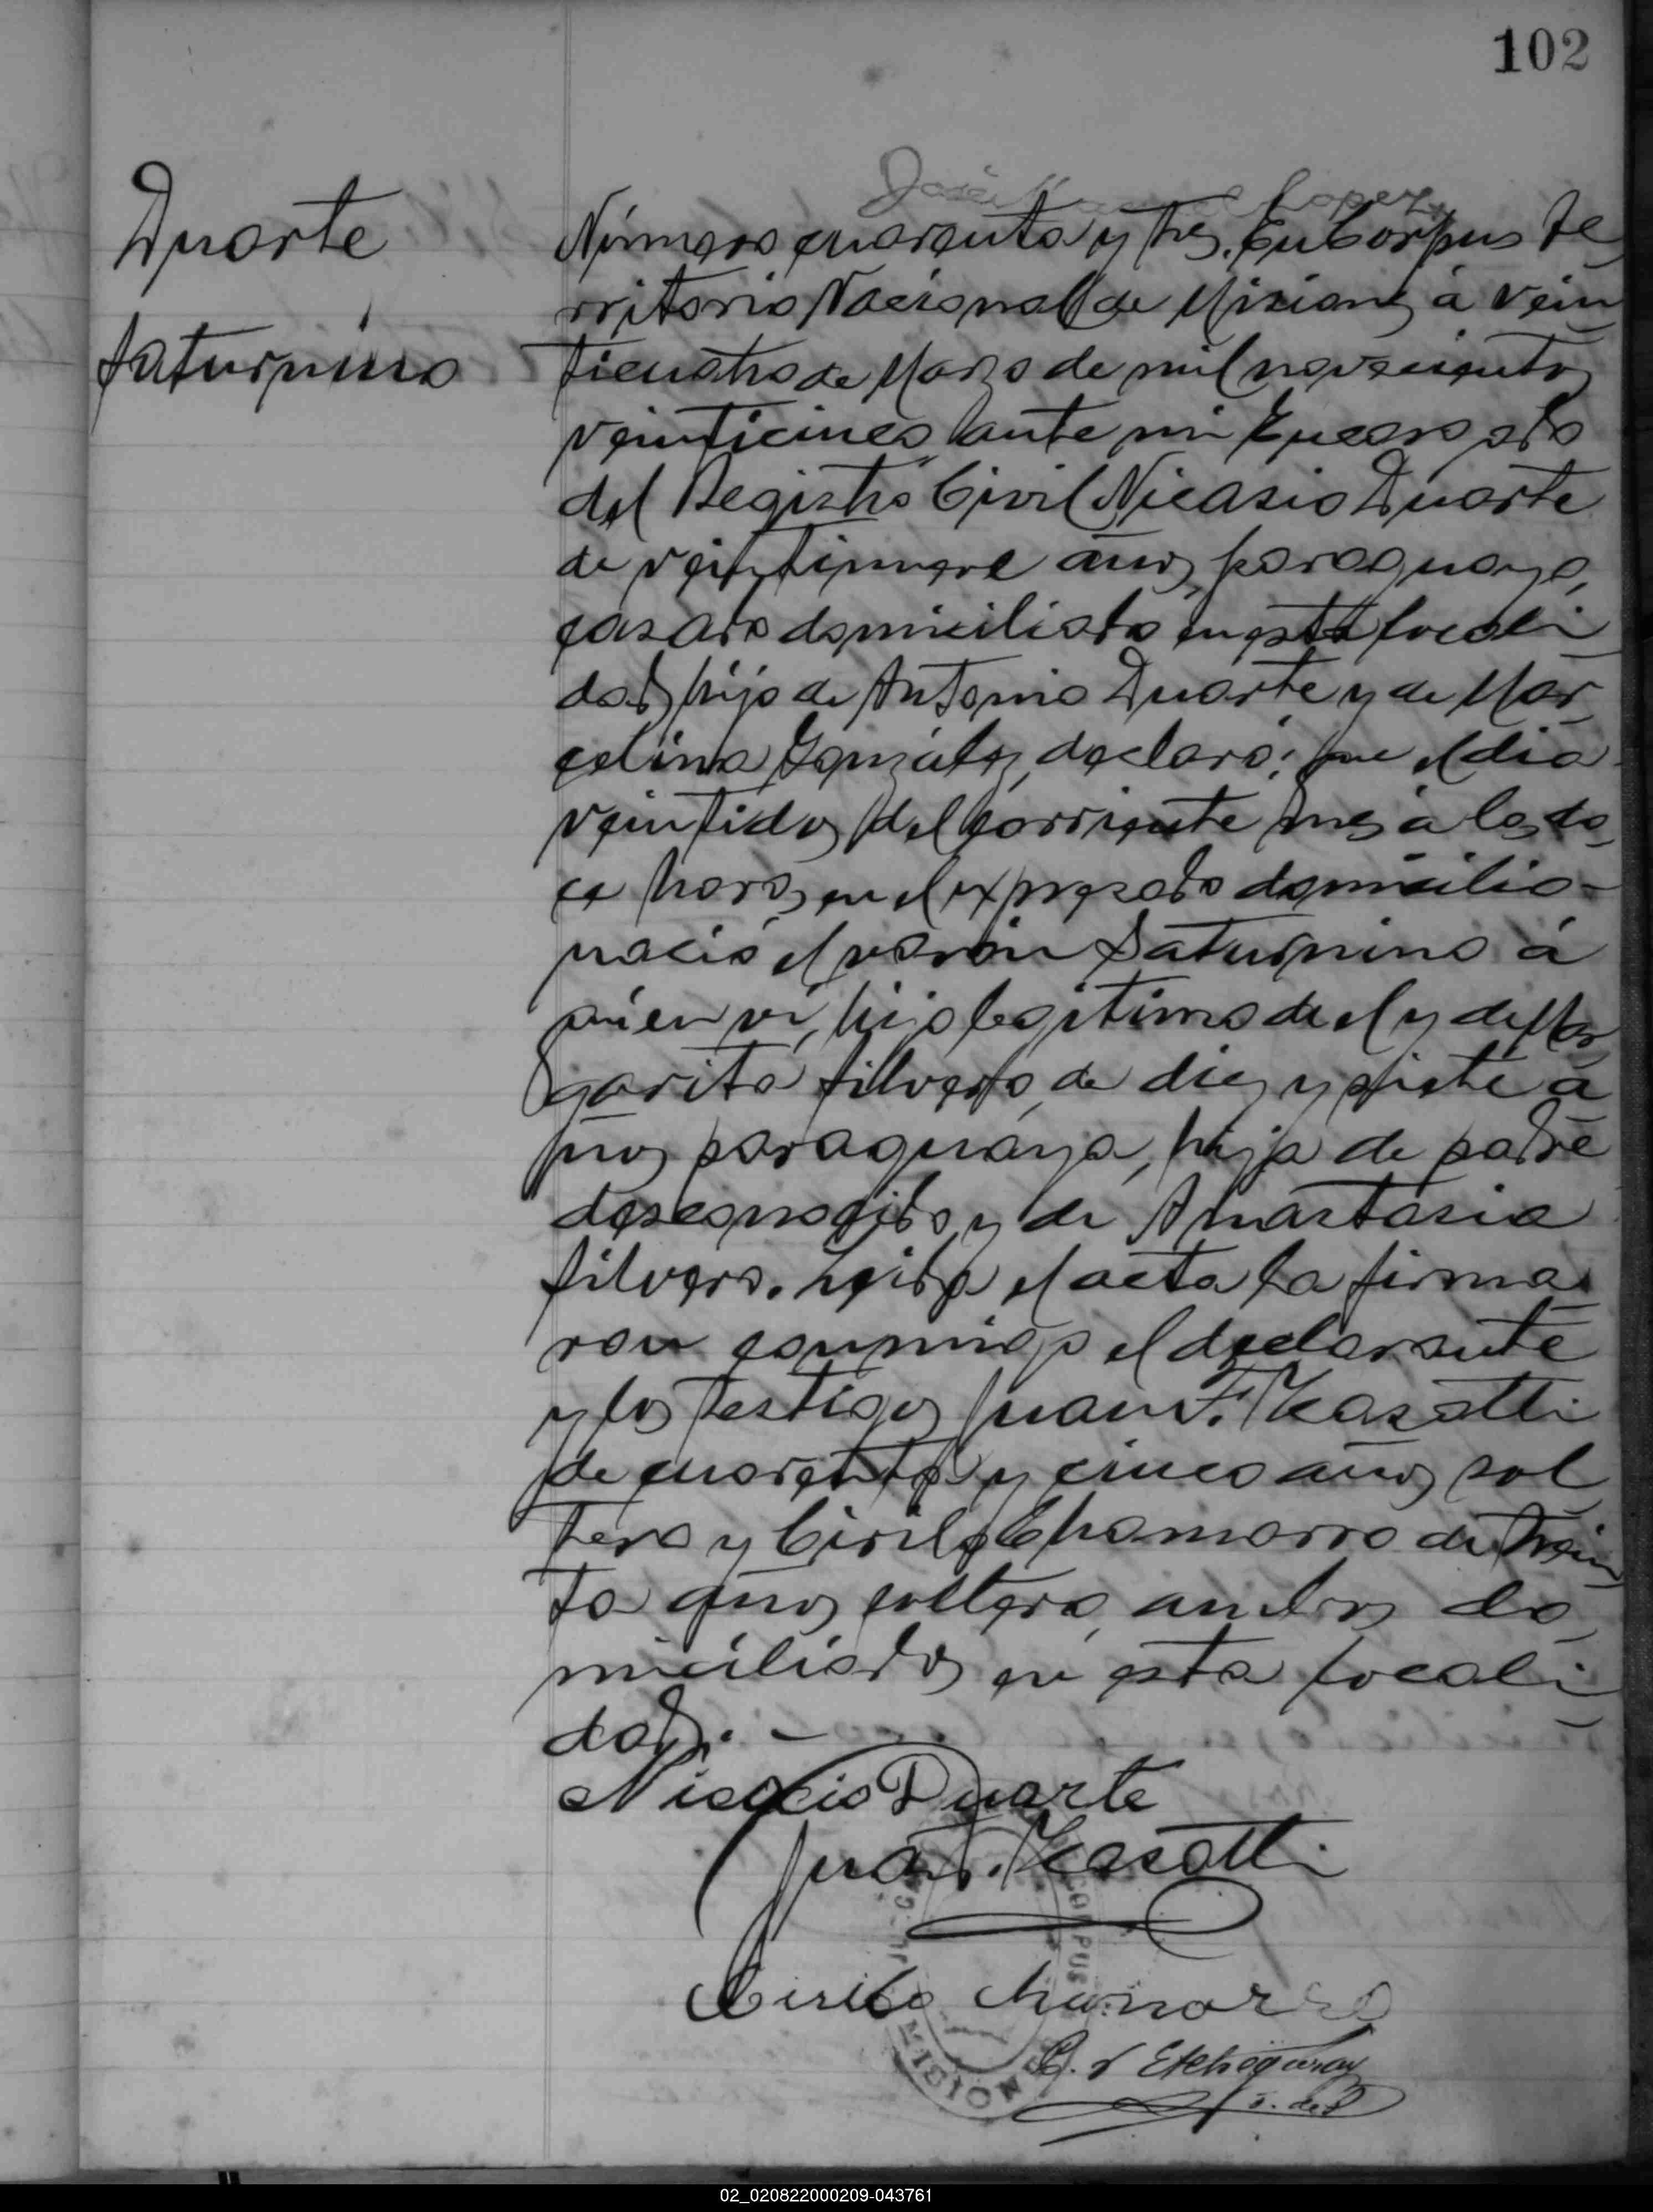 102
José Lopez
Duarte
Saturnino
Número cuarenta y tres. En Corpus te
rritorio Nacional de Misiones á vein
ticuatro de Marzo de mil novecientos
veinticinco, ante mi Encargado
del Registro Civil Nicasio Duarte
de veintinueve años, paraguayo,
casado domiciliado en esta locali
dad, hijo de Antonio Duarte y de Mar
celina González, declaró: que el dia
veintidos del corriente mes á las do
ce horas, en el expresado domicilio -
nació el varón Saturnino á
quien vi, hijo legitimo de el y de Mar
garita Silvero, de diez y siete a
ños, paraguaya, hija de padre
desconocido, y de Anastasia
Silvero. Leida el acta la firma
ron conmigo el declarante
y los testigos Juan F. Kasatti
de cuarenta y cinco años, sol
tero y Cirilo Chamorro de trein
ta años, soltero, ambos do
miciliados en esta locali
dad. -
Nicacio Duarte
Juan F. Kasatti
Cirilo Chamorro
Etchegaray
CORPUS
MISIONES
02_020822000209-043761